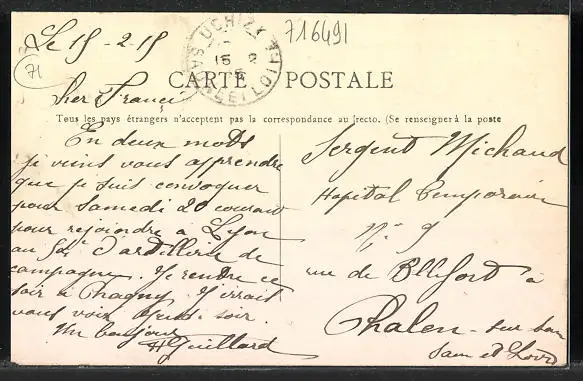 716491
Le 15-2-15
71
UCHIZY
15 2
15
SAONE ET LOIRE
CARTE POSTALE
Tous les pays étrangers n'acceptent pas la correspondance au recto. (Se renseigner à la poste
Cher Francis
En deux mots
je viens vous apprendre
que je suis convoquer
pour Samedi 20 courant
pour rejoindre à Lyon
au d'artillerie de
campagne. Je rentre ce
soir à Chagny. J'irrait
vous voir soir.
Un bonjour
H Guillard
Sergent Michaud
Hopital Temporaire
N° 9
rue de Bellfort à
Chalon-sur-Saon
Saon et Loire